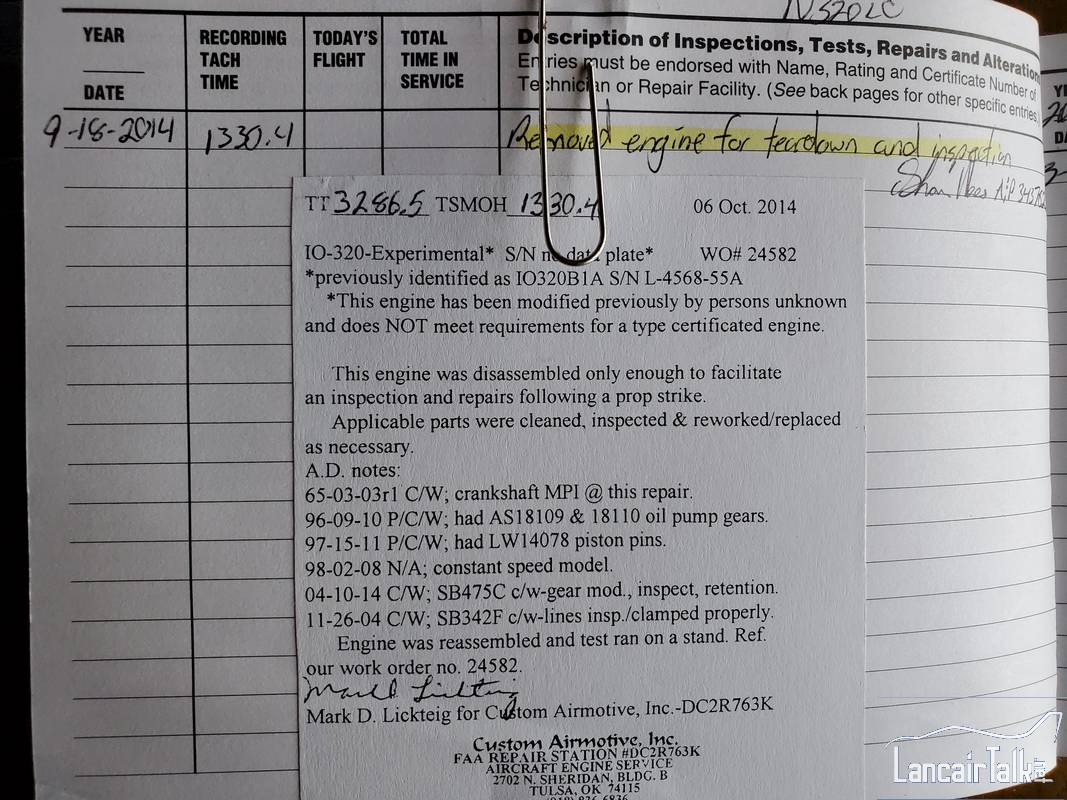 N320LC
YEAR
DATE
RECORDING
TACH
TIME
TODAY'S
FLIGHT
TOTAL
TIME IN
SERVICE
Description of Inspections, Tests, Repairs and Alteration
Entries must be endorsed with Name, Rating and Certificate Number of
Technician or Repair Facility. (See back pages for other specific entries.)
9-18-2014 1330.4 Removed engine for teardown and inspection
A&P
TT 3286.5 TSMOH 1330.4 06 Oct. 2014
IO-320-Experimental* S/N no data plate* WO# 24582
*previously identified as IO320B1A S/N L-4568-55A
*This engine has been modified previously by persons unknown
and does NOT meet requirements for a type certificated engine.
This engine was disassembled only enough to facilitate
an inspection and repairs following a prop strike.
Applicable parts were cleaned, inspected & reworked/replaced
as necessary.
A.D. notes:
65-03-03r1 C/W; crankshaft MPI @ this repair.
96-09-10 P/C/W; had AS18109 & 18110 oil pump gears.
97-15-11 P/C/W; had LW14078 piston pins.
98-02-08 N/A; constant speed model.
04-10-14 C/W; SB475C c/w-gear mod., inspect, retention.
11-26-04 C/W; SB342F c/w-lines insp./clamped properly.
Engine was reassembled and test ran on a stand. Ref.
our work order no. 24582.
Mark D Lickteig
Mark D. Lickteig for Custom Airmotive, Inc.-DC2R763K
Custom Airmotive, Inc.
FAA REPAIR STATION #DC2R763K
AIRCRAFT ENGINE SERVICE
2702 N. SHERIDAN, BLDG. B
TULSA, OK 74115
(918) 836-6836
LancairTalk